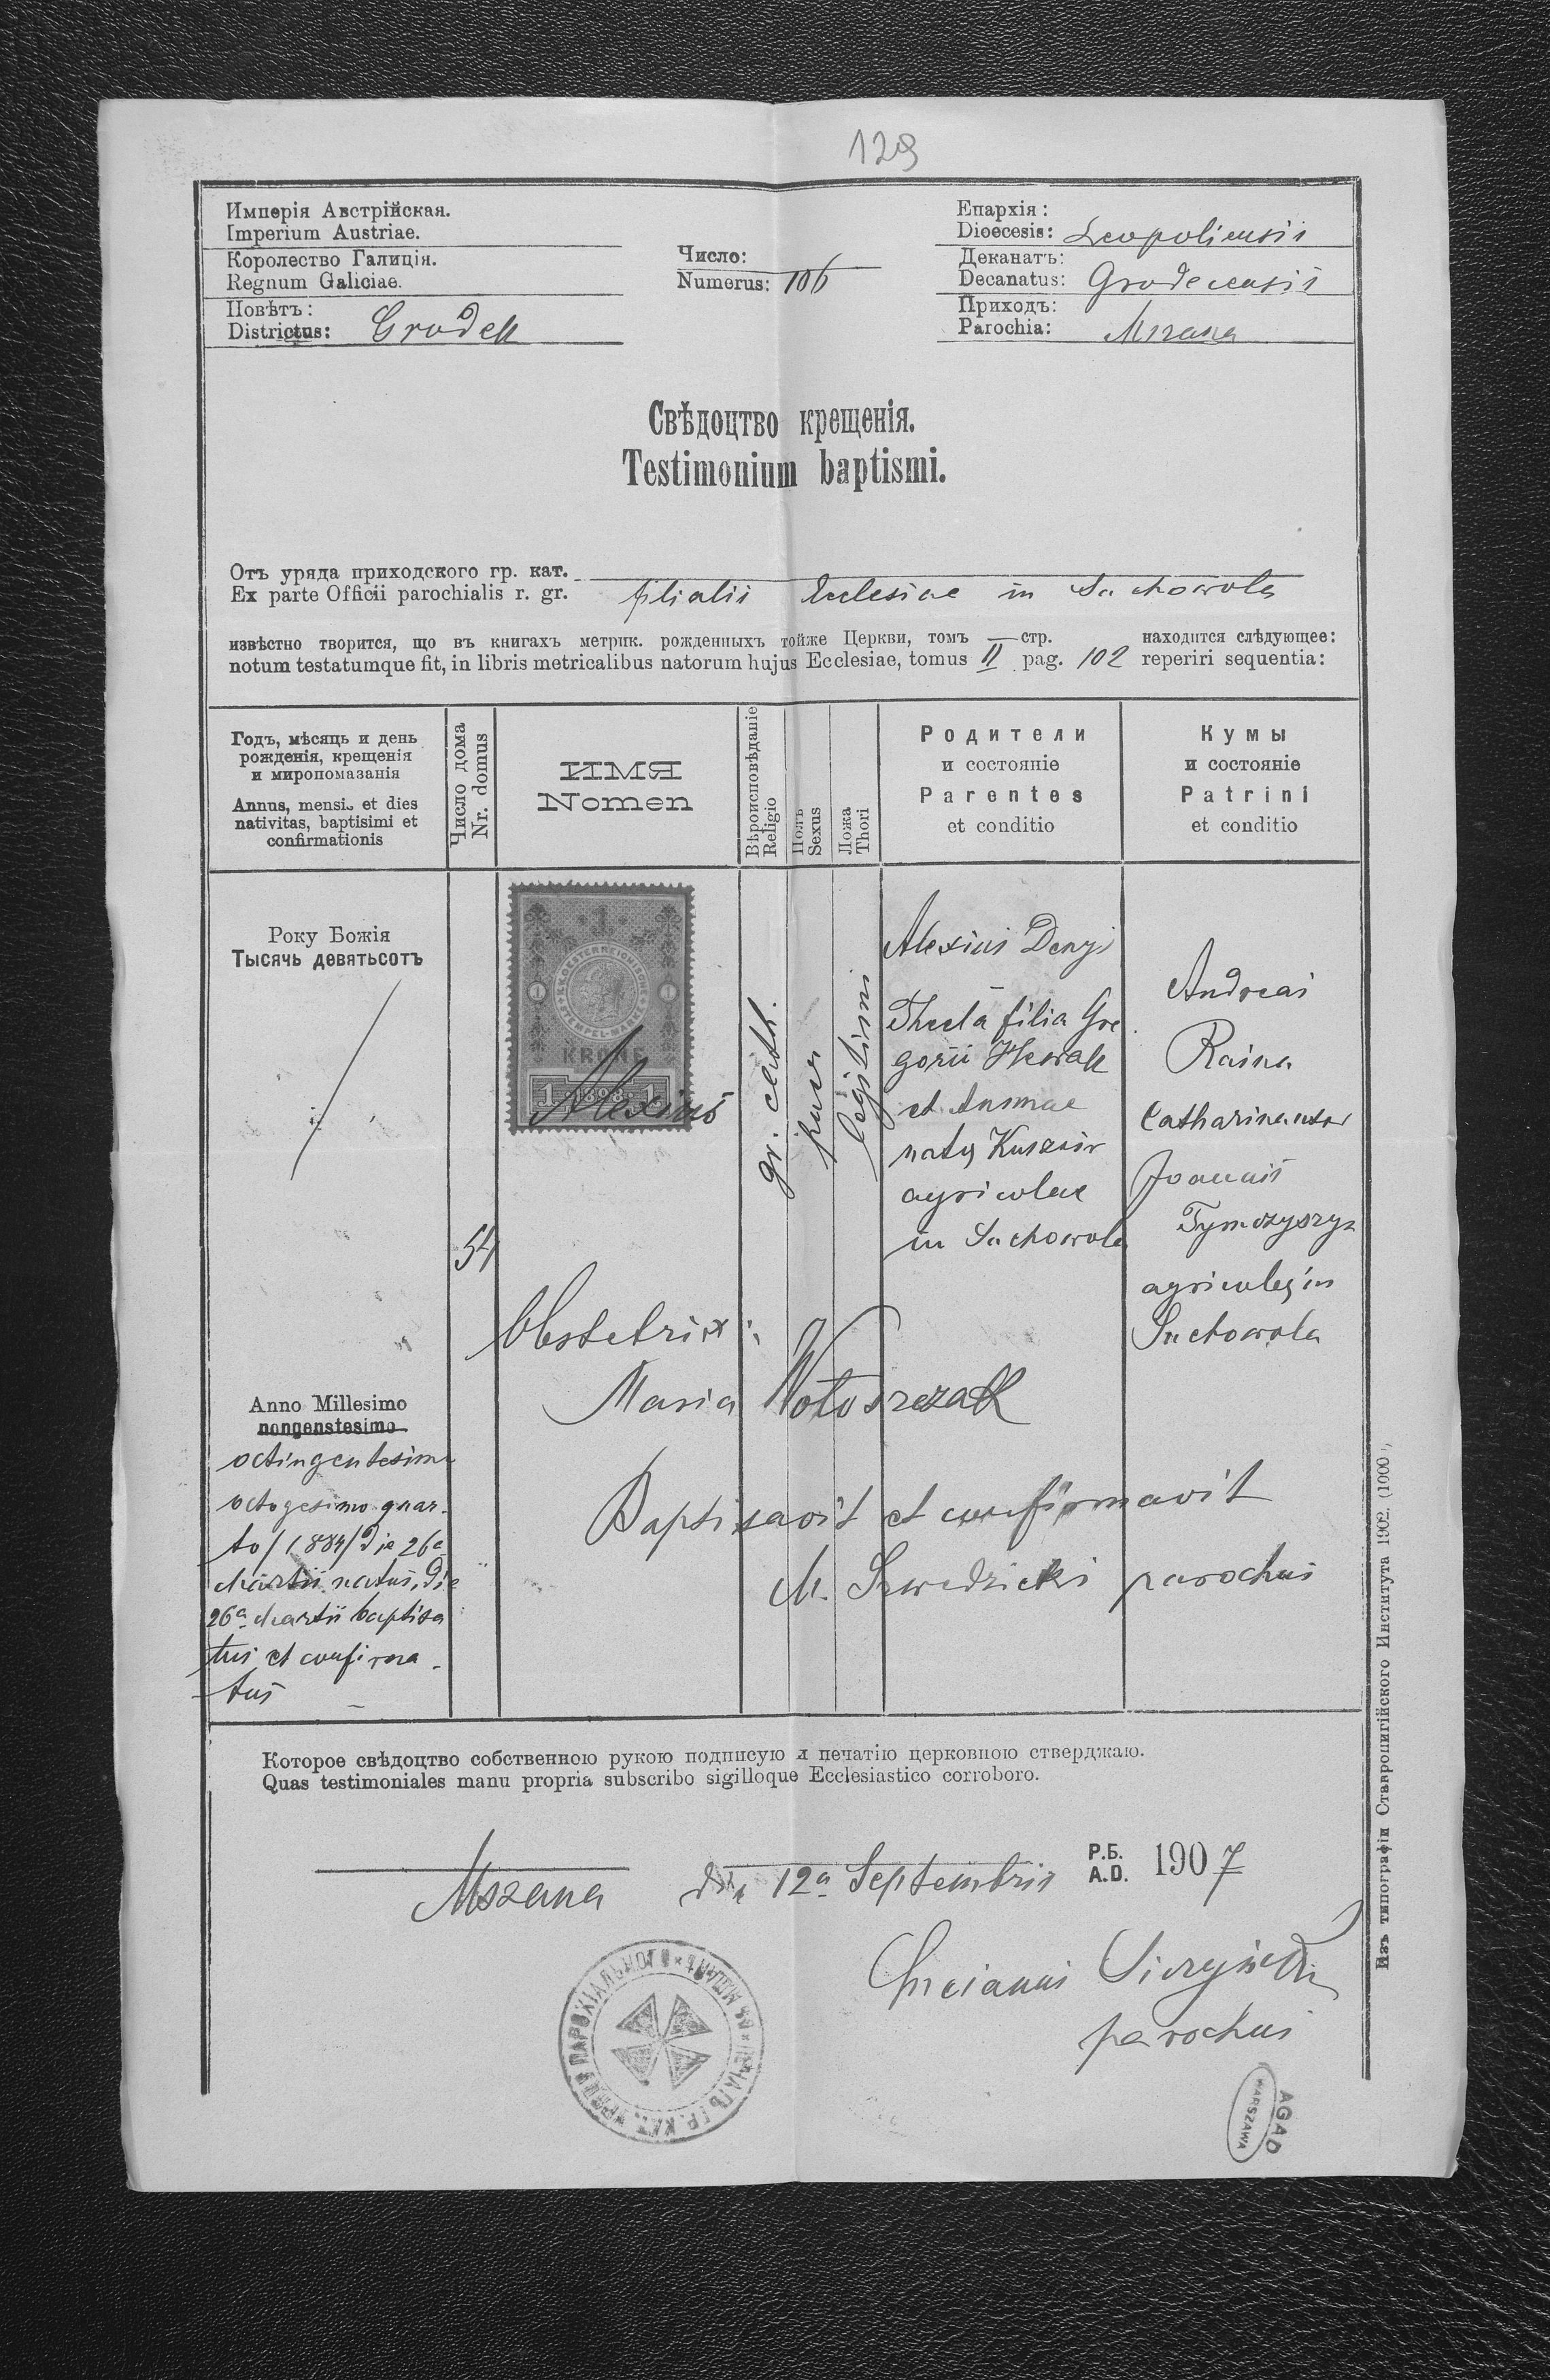 129
Имперія Австрійская.
Imperium Austriae.
Королество Галиція.
Regnum Galiciae.
Повѣтъ:
Districtus: Grodek
Число:
Numerus: 106
Епархія:
Dioecesis: Leopoliensis
Деканатъ:
Decanatus: Grodecensis
Приходъ:
Parochia: Mszana
Свѣдоцтво крещенія.
Testimonium baptismi.
Отъ уряда приходского гр. кат.
Ex parte Officii parochialis r. gr. filialis Ecclesiae in Suchowola
извѣстно творится, що въ книгахъ метрик. рожденныхъ тойже Церкви, томъ — стр. находится слѣдующее:
notum testatumque fit, in libris metricalibus natorum hujus Ecclesiae, tomus II pag. 102 reperiri sequentia:
Годъ, мѣсяць и день
рожденія, крещенія
и миропомазанія
Annus, mensis et dies
nativitas, baptisimi et
confirmationis
Число дома
Nr. domus
ИМЯ
Nomen
Вѣроисповѣданіе
Religio
Полъ
Sexus
Ложа
Thori
Родители
и состояніе
Parentes
et conditio
Кумы
и состояніе
Patrini
et conditio
Року Божія
Тысячь девятьсотъ
Anno Millesimo
nongenstesimo
octingentesimo
octogesimo quar-
to /1884/ die 26a
Martii natus, die
26a Martii baptisa
tus et confirma-
tus
54
1
K.K. OESTERREICHISCHE
STEMPEL-MARKE
KRONE
1 1898 1
Alexius
gr. cath.
puer
legitimi
Alexius Denys
Thecla filia Gre
gorii
et Annae
natą
agricolae
in Suchowola
Andreas
Raina
Catharina uxor
Joannis
Tymczyszyn
agricolę in
Suchowola
Obstetrix:
Maria Wołoszczak
Baptisavit et confirmavit
M. Szwedzicki parochus
Которое свѣдоцтво собственною рукою подписую и печатію церковною стверджаю.
Quas testimoniales manu propria subscribo sigilloque Ecclesiastico corroboro.
Mszana die 12a Septembris Р.Б.
A.D. 1907
parochus
ПЕЧАТЬ ГР. КАТ. УРЯДУ ПАРОХІАЛЬНОГО
AGAD
WARSZAWA
Изъ типографіи Ставропигійского Института 1902. (1000).